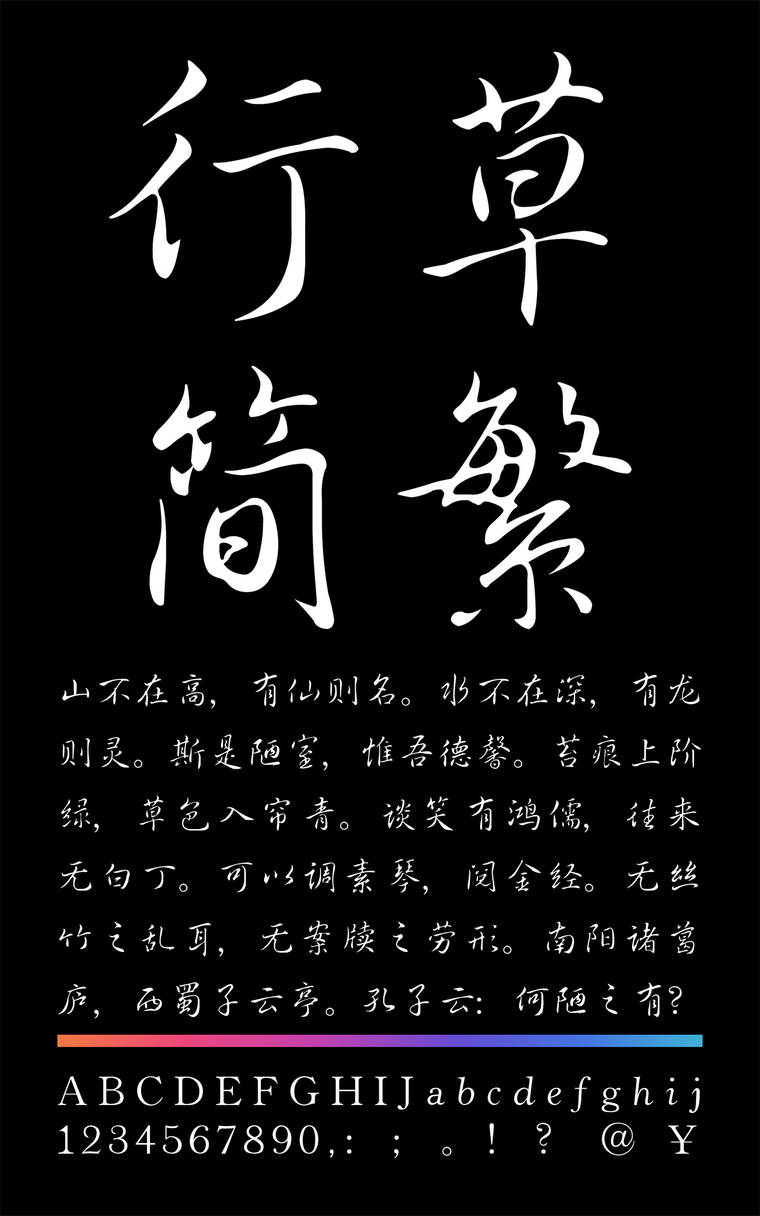 行草
简繁
山不在高，有仙则名。水不在深，有龙
则灵。斯是陋室，惟吾德馨。苔痕上阶
绿，草色入帘青。谈笑有鸿儒，往来
无白丁。可以调素琴，阅金经。无丝
竹之乱耳，无案牍之劳形。南阳诸葛
庐，西蜀子云亭。孔子云：何陋之有？
ABCDEFGHIJabcdefghij
1234567890,：；。！？@¥